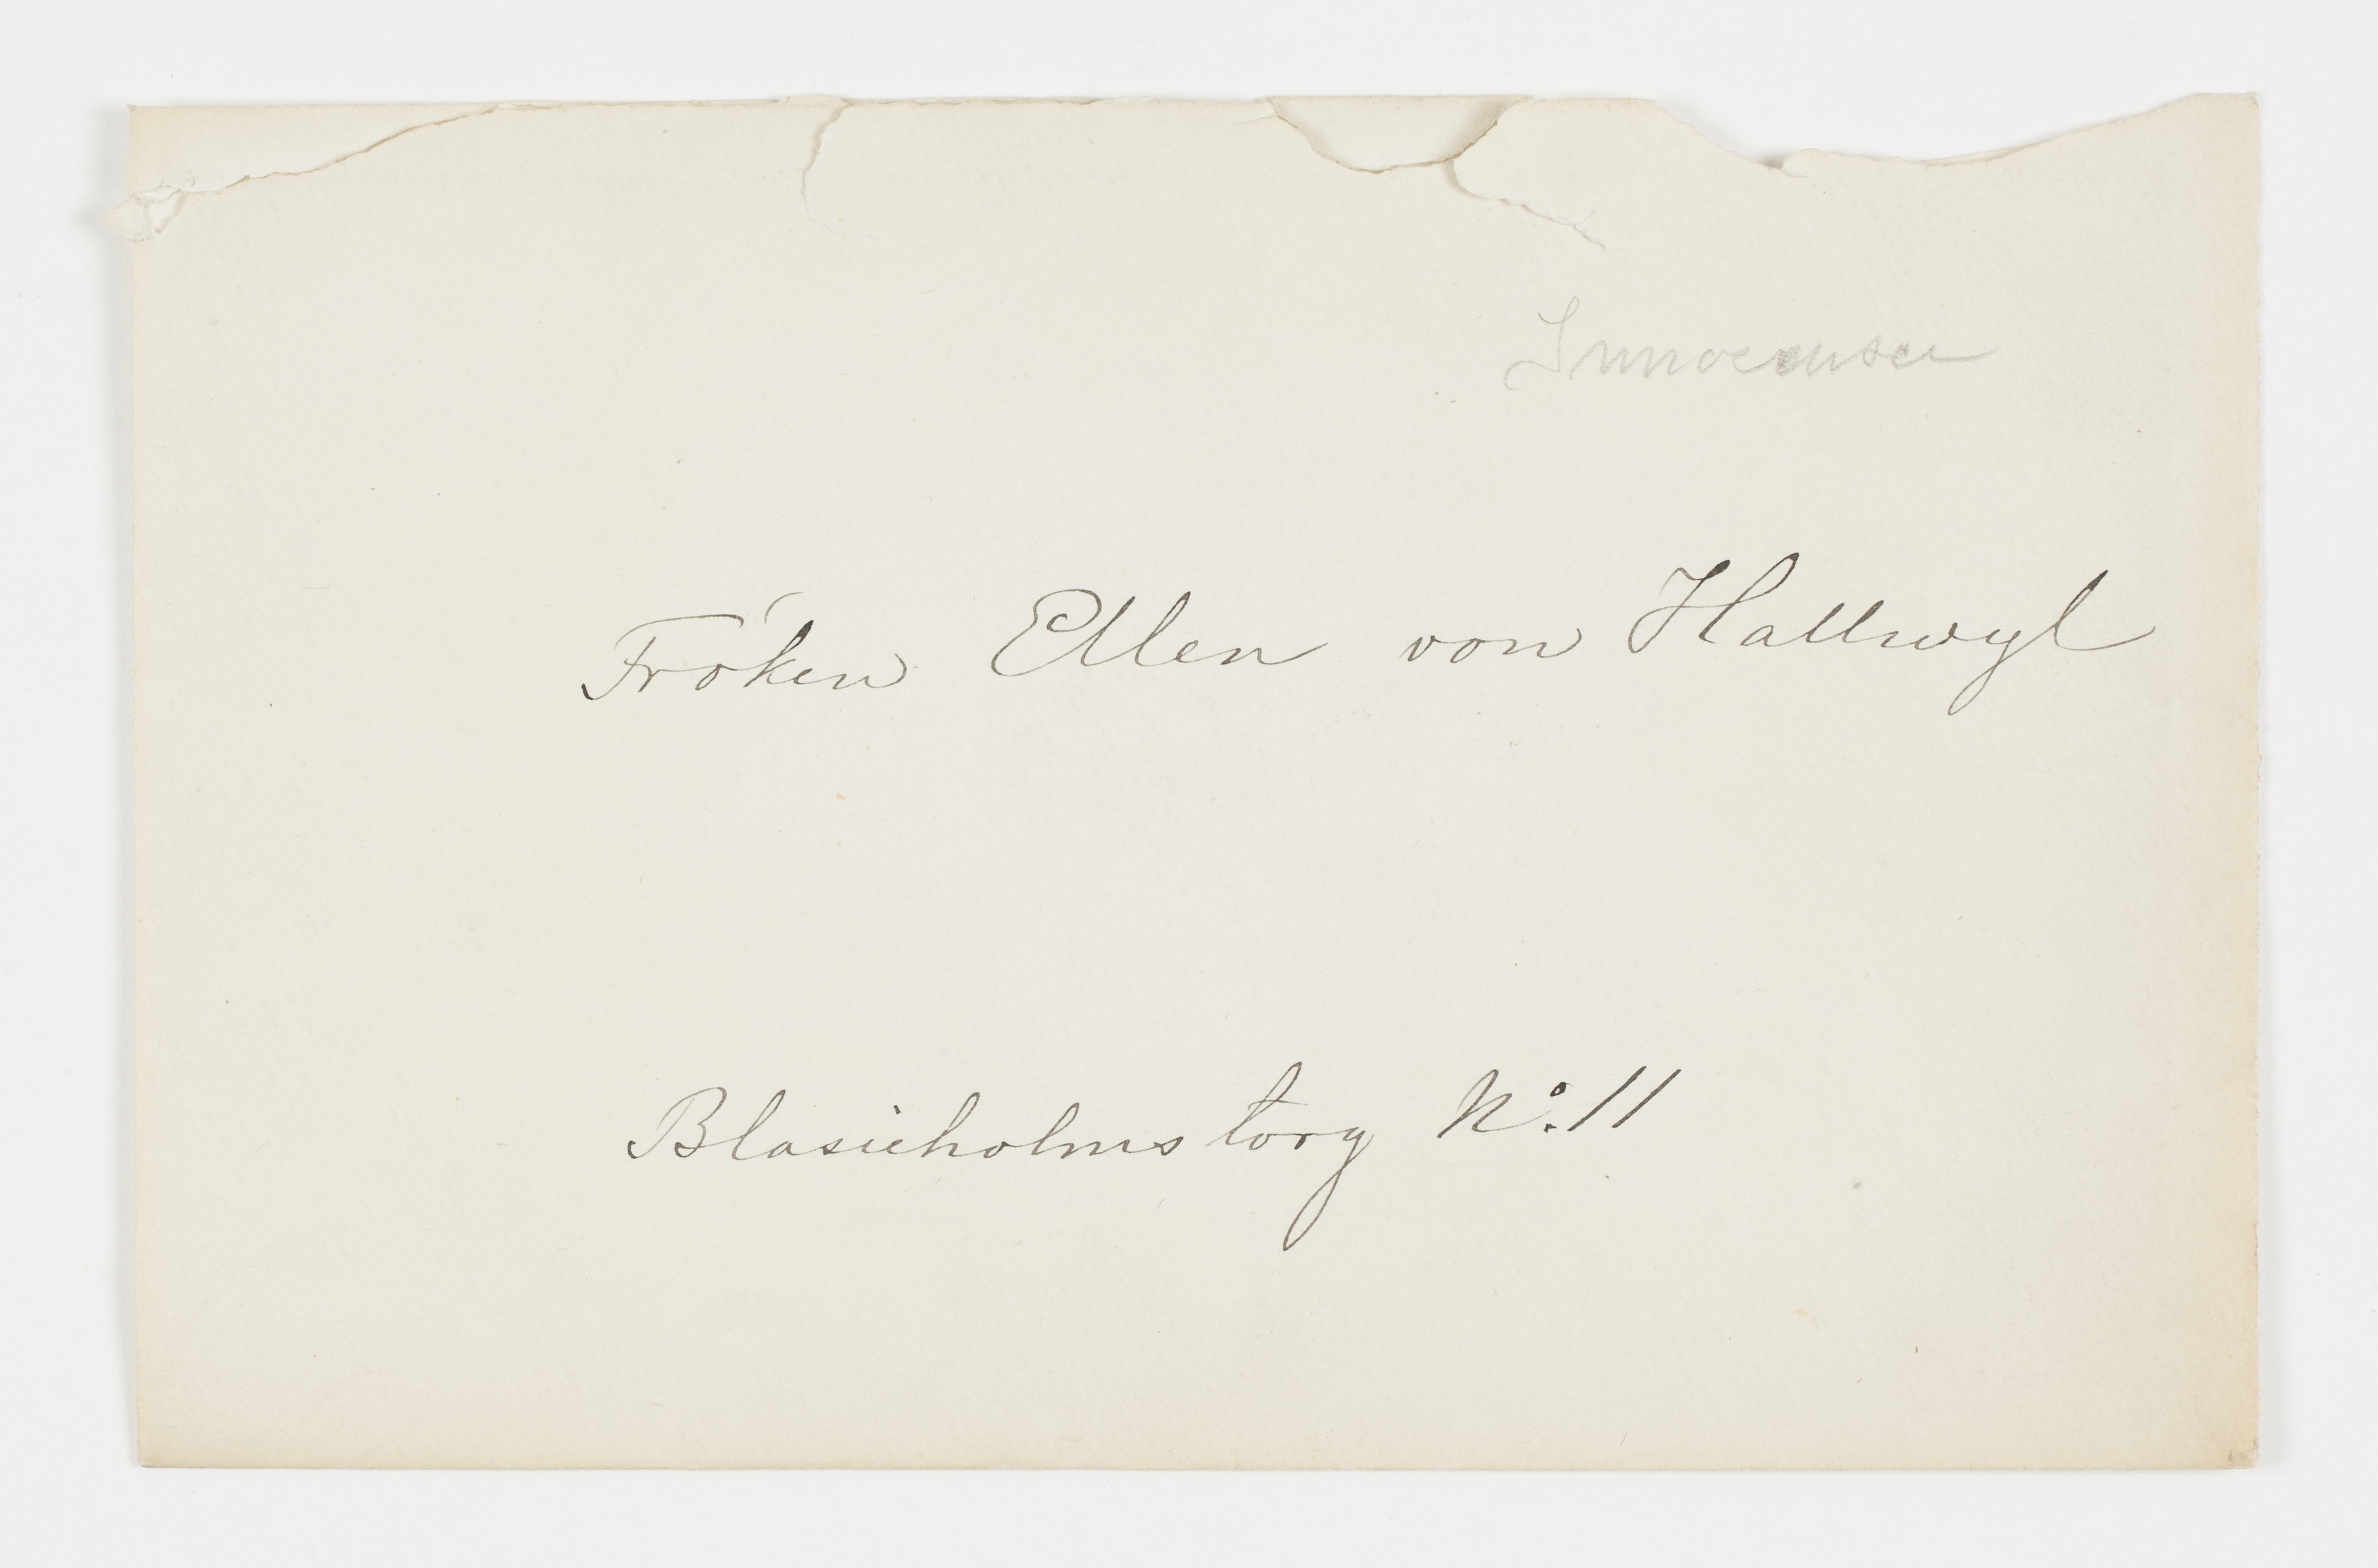 Innocensen
Fröken Ellen von Hallwyl
Blasieholmstorg No. 11